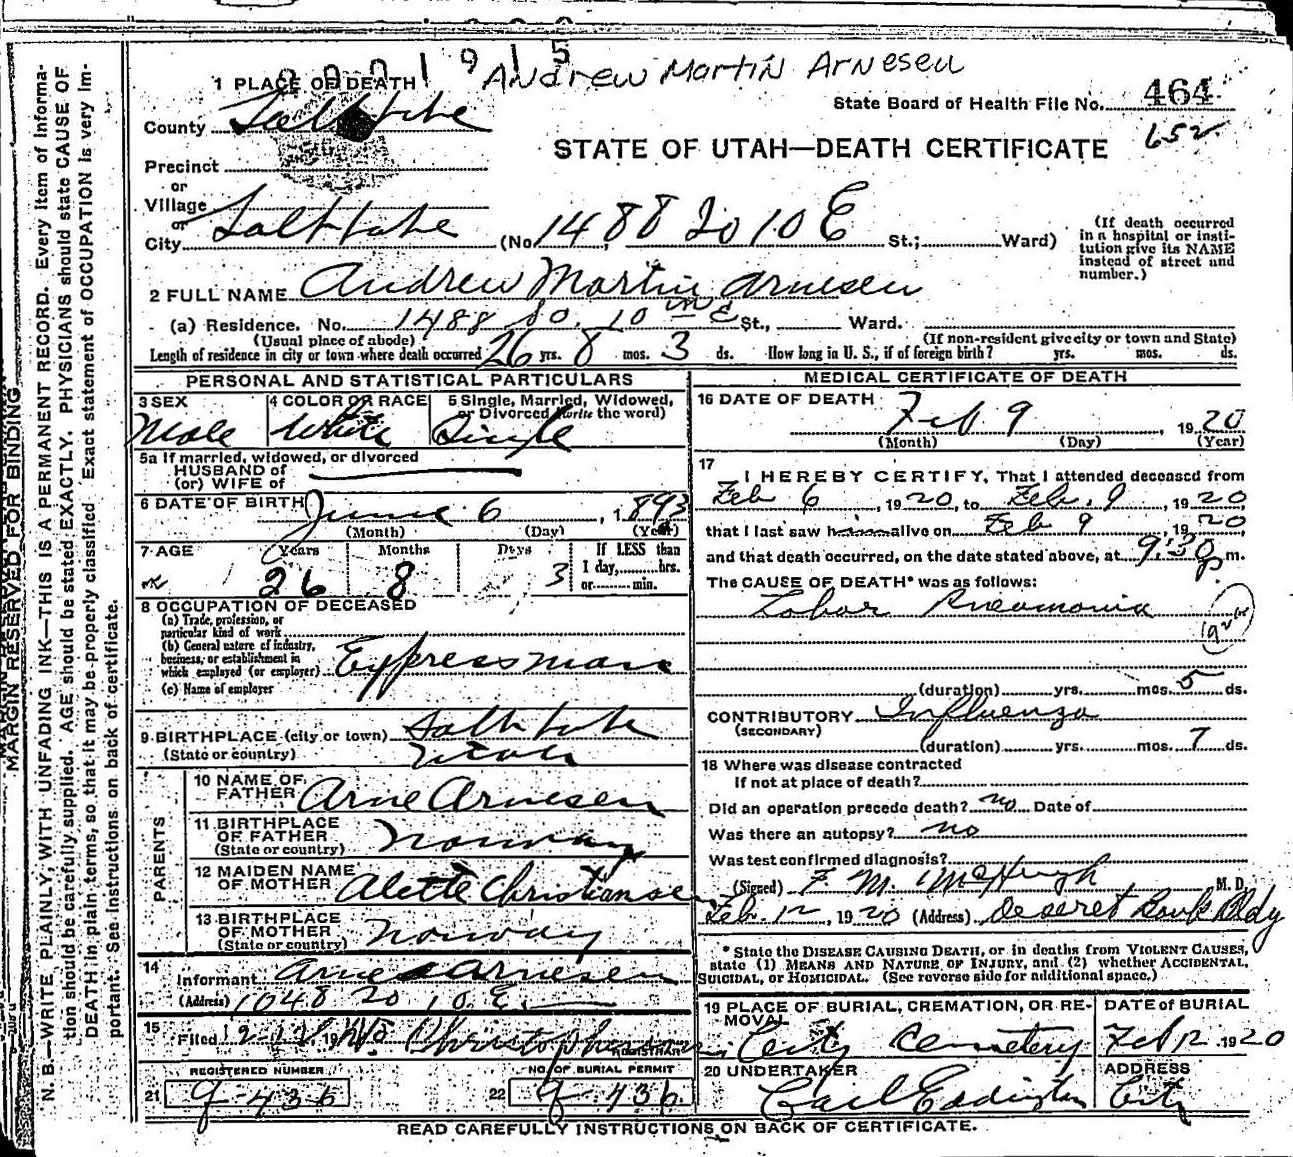 1915 Andrew Martin Arnesen
1 PLACE OF DEATH
State Board of Health File No. 464
County Salt Lake
652
STATE OF UTAH—DEATH CERTIFICATE
Precinct
or
Village
or
City Salt Lake (No. 1488 So 10 E St.; Ward)
(If death occurred in a hospital or institution give its NAME instead of street and number.)
2 FULL NAME Andrew Martin Arnesen
(a) Residence. No. 1488 So. 10 E St., Ward.
(Usual place of abode) (If non-resident give city or town and State)
Length of residence in city or town where death occurred 26 yrs. 8 mos. 3 ds. How long in U. S., if of foreign birth? yrs. mos. ds.
PERSONAL AND STATISTICAL PARTICULARS
3 SEX 4 COLOR OR RACE 5 Single, Married, Widowed, or Divorced (write the word)
Male White Single
5a If married, widowed, or divorced
HUSBAND of
(or) WIFE of
6 DATE OF BIRTH June 6, 1893
(Month) (Day) (Year)
7 AGE Years Months Days If LESS than
1 day, hrs.
or min.
26 8 3
8 OCCUPATION OF DECEASED
(a) Trade, profession, or
particular kind of work
(b) General nature of industry,
business, or establishment in
which employed (or employer) Expressman
(c) Name of employer
9 BIRTHPLACE (city or town) Salt Lake
(State or country) Utah
PARENTS
10 NAME OF FATHER Arne Arnesen
11 BIRTHPLACE OF FATHER (State or country) Norway
12 MAIDEN NAME OF MOTHER Alette Christiansen
13 BIRTHPLACE OF MOTHER (State or country) Norway
14
Informant Arne Arnesen
(Address) 1048 So 10 E.
15
Filed 2-12, 19 Christophersen
REGISTRAR
REGISTERED NUMBER NO. OF BURIAL PERMIT
21 9-436 22 9-436
MEDICAL CERTIFICATE OF DEATH
16 DATE OF DEATH Feb 9, 1920
(Month) (Day) (Year)
17
I HEREBY CERTIFY, That I attended deceased from
Feb 6, 1920, to Feb. 9, 1920
that I last saw him alive on Feb 9, 1920,
and that death occurred, on the date stated above, at 9:30 p m.
The CAUSE OF DEATH* was as follows:
Lobar Pneumonia
(duration) yrs. mos. 5 ds.
CONTRIBUTORY Influenza
(SECONDARY)
(duration) yrs. mos. 7 ds.
18 Where was disease contracted
If not at place of death?
Did an operation precede death? no Date of
Was there an autopsy? no
Was test confirmed diagnosis?
(Signed) F. M. McHugh M. D.
Feb. 12, 1920 (Address) Deseret Bank Bldg
* State the DISEASE CAUSING DEATH, or in deaths from VIOLENT CAUSES,
state (1) MEANS AND NATURE OF INJURY, and (2) whether ACCIDENTAL,
SUICIDAL, or HOMICIDAL. (See reverse side for additional space.)
19 PLACE OF BURIAL, CREMATION, OR REMOVAL DATE of BURIAL
City Cemetery Feb 12 1920
20 UNDERTAKER ADDRESS
Carl Eddington City
READ CAREFULLY INSTRUCTIONS ON BACK OF CERTIFICATE.
MARGIN RESERVED FOR BINDING
N. B.—WRITE PLAINLY, WITH UNFADING INK—THIS IS A PERMANENT RECORD. Every item of informa-
tion should be carefully supplied. AGE should be stated EXACTLY. PHYSICIANS should state CAUSE OF
DEATH in plain terms, so that it may be properly classified. Exact statement of OCCUPATION is very im-
portant. See instructions on back of certificate.